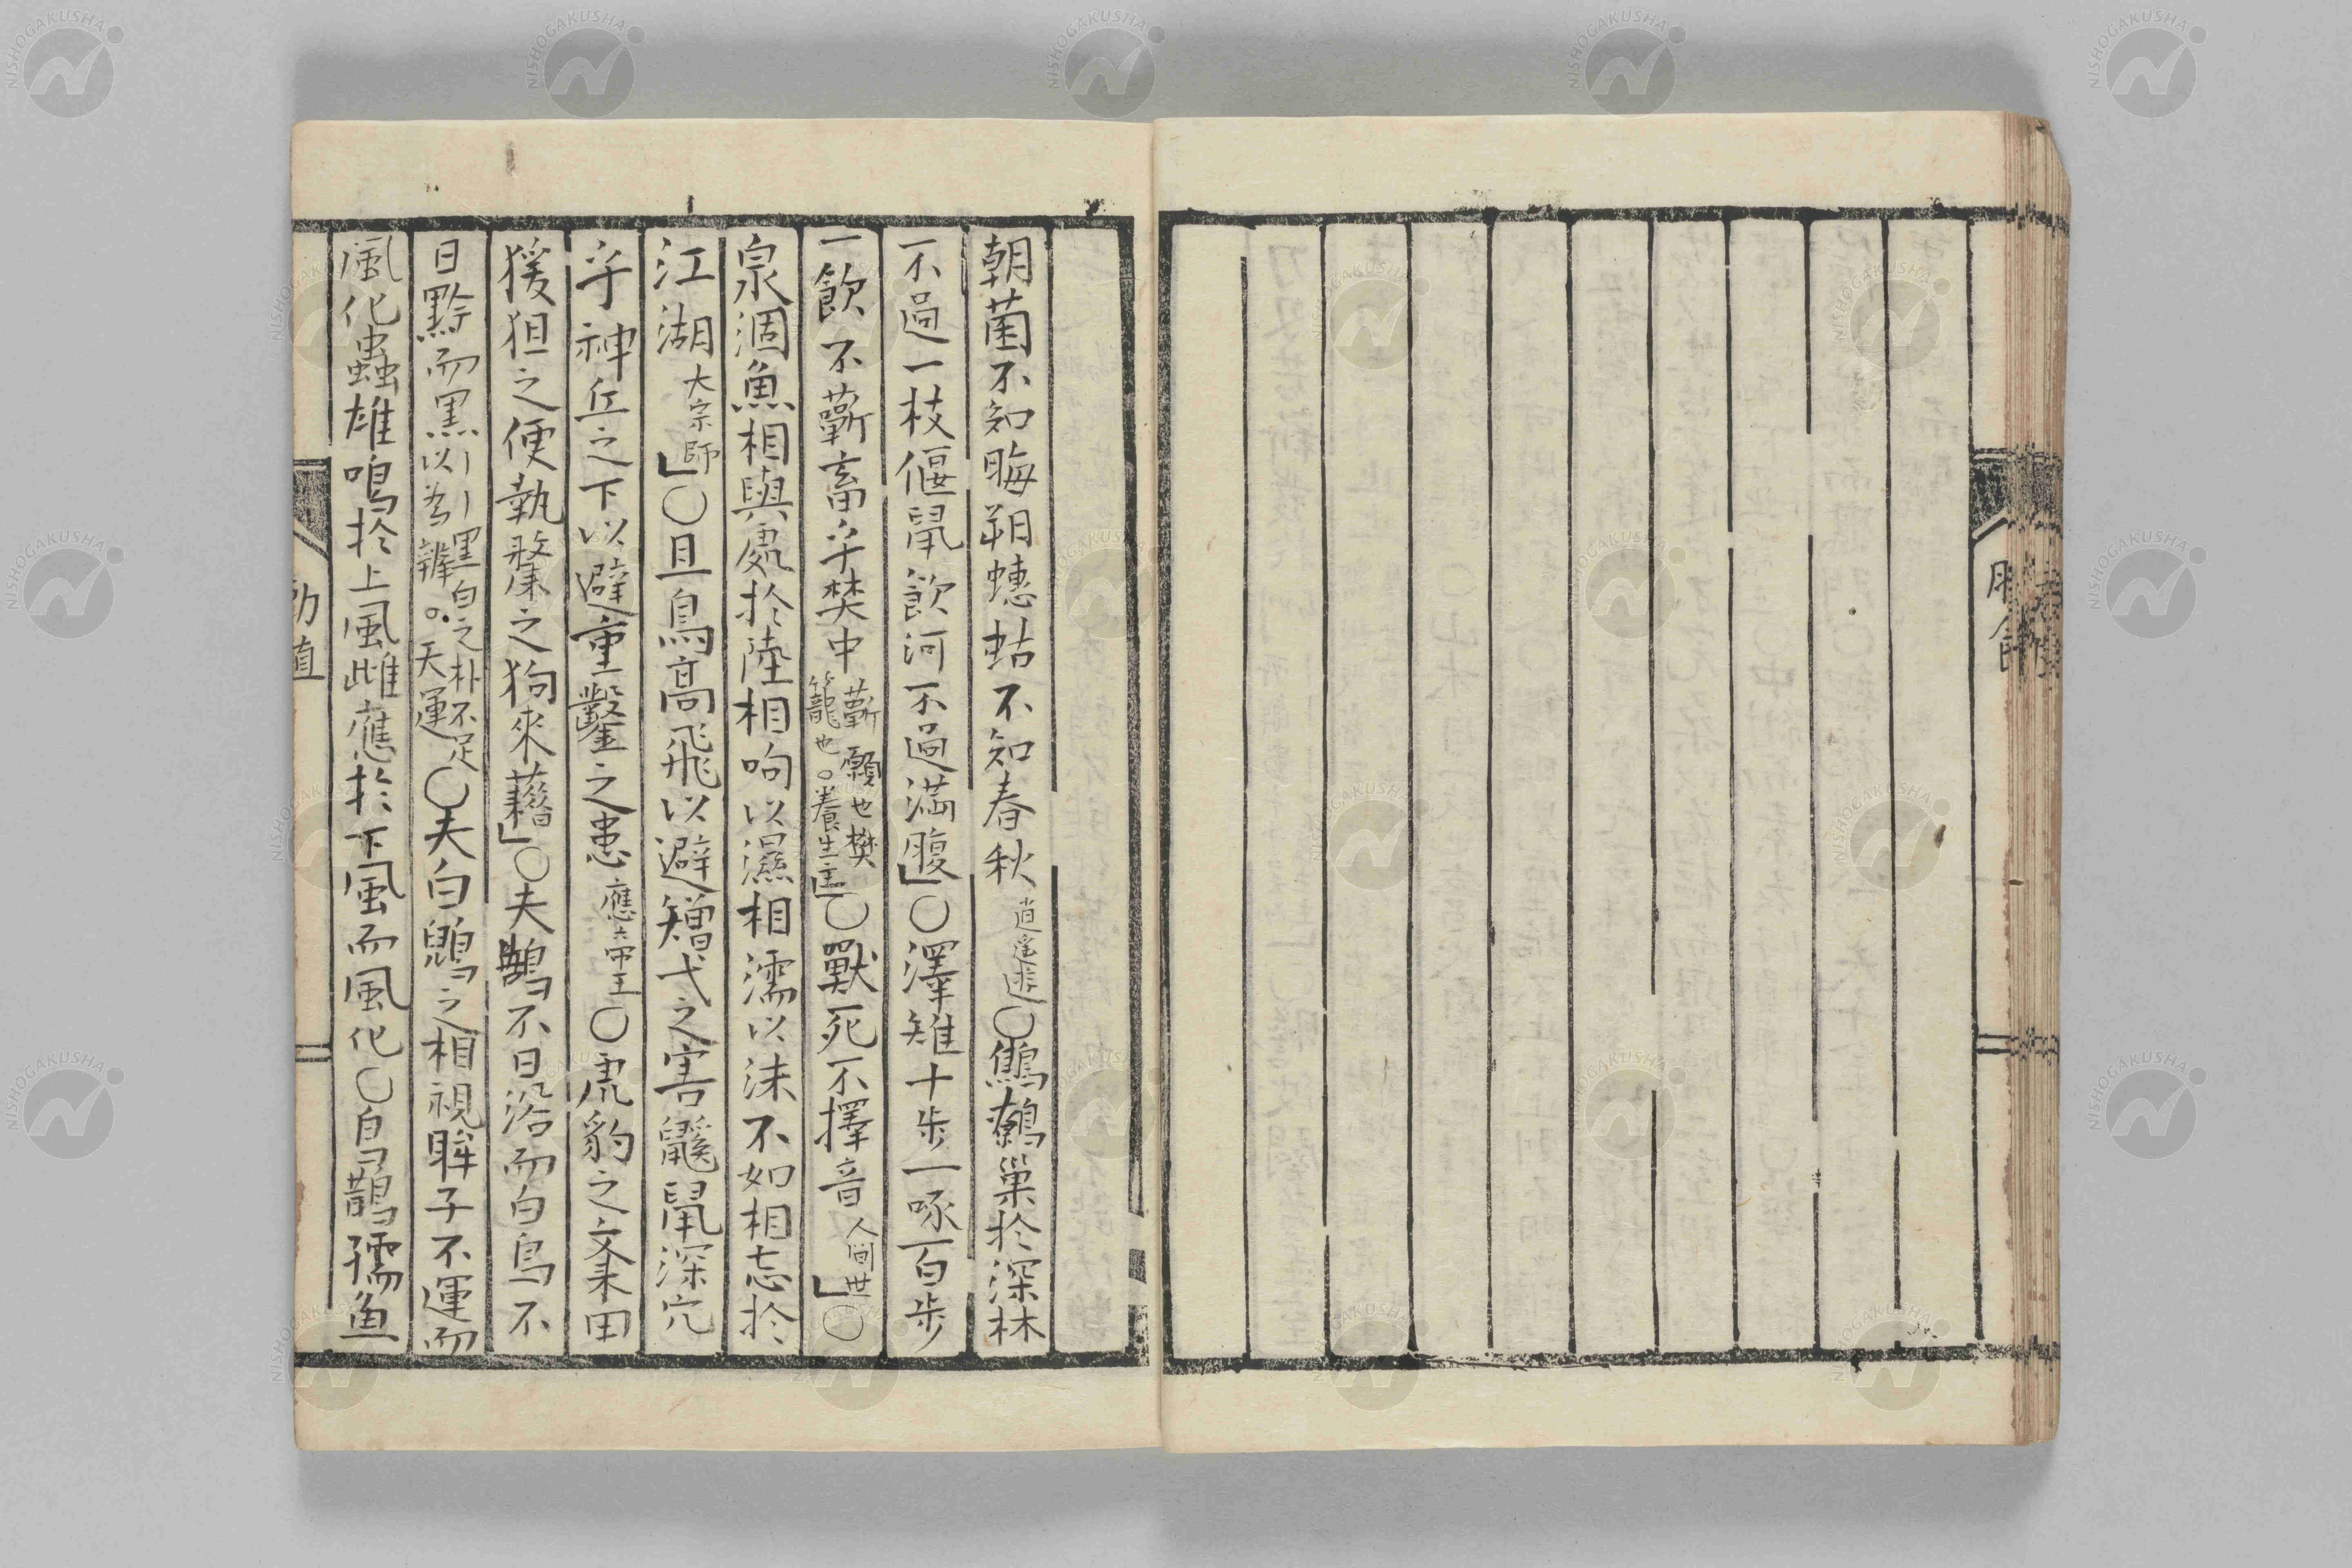 朝菌不知晦朔蟪蛄不知春秋逍遥遊〇鷦鷯巢於深林
不過一枝偃鼠飲河不過満腹」〇澤雉十步一啄百步
一飲不蘄畜乎樊中蘄願也樊籠也。養生主」〇獸死不擇音人间世」〇
泉涸魚相與處於陸相呴以濕相濡以沫不如相忘於
江湖大宗師」〇且鳥高飛以避矰弋之害鼷鼠深穴
乎神丘之下以避重鑿之患應帝王〇虎豹之文来田
猨狙之便執斄之狗來藉」〇夫鵠不日浴而白烏不
日黔而黒黒白之朴不足以為辨。天運〇夫白鶂之相視眸子不運而
風化蟲雄鳴於上風雌應於下風而風化〇烏鵲孺魚
NISHOGAKUSHA